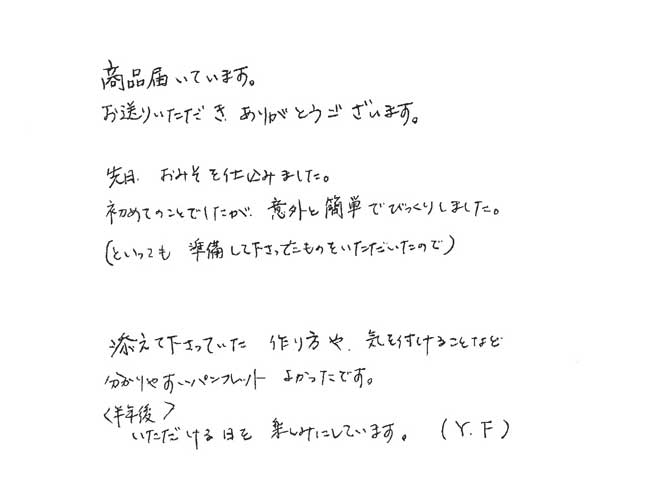 商品届いています。
お送りいただき、ありがとうございます。
先日、おみそを仕込みました。
初めてのことでしたが、意外と簡単でびっくりしました。
(といっても 準備して下さったものをいただいたので)
添えて下さっていた 作り方や、気を付けることなど
分かりやすいパンフレット よかったです。
<半年後>
いただける日を 楽しみにしています。 (Y.F)